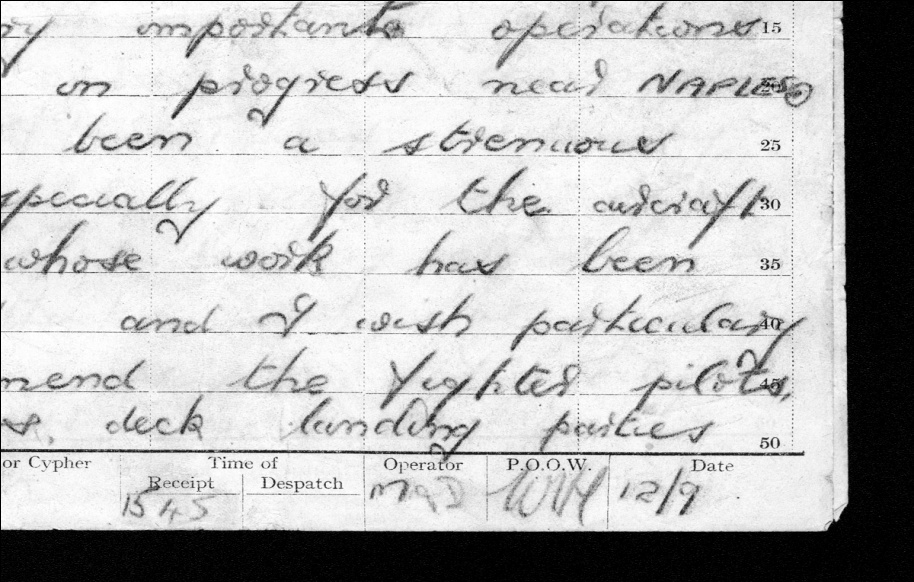 ry important operations 15
in progress near NAPLES 20
been a strenuous 25
specially for the aircraft 30
whose work has been 35
and I wish particularly 40
mend the fighter pilots, 45
s. deck landing parties 50
or Cypher Time of Operator P.O.O.W. Date
Receipt Despatch
1545 12/9